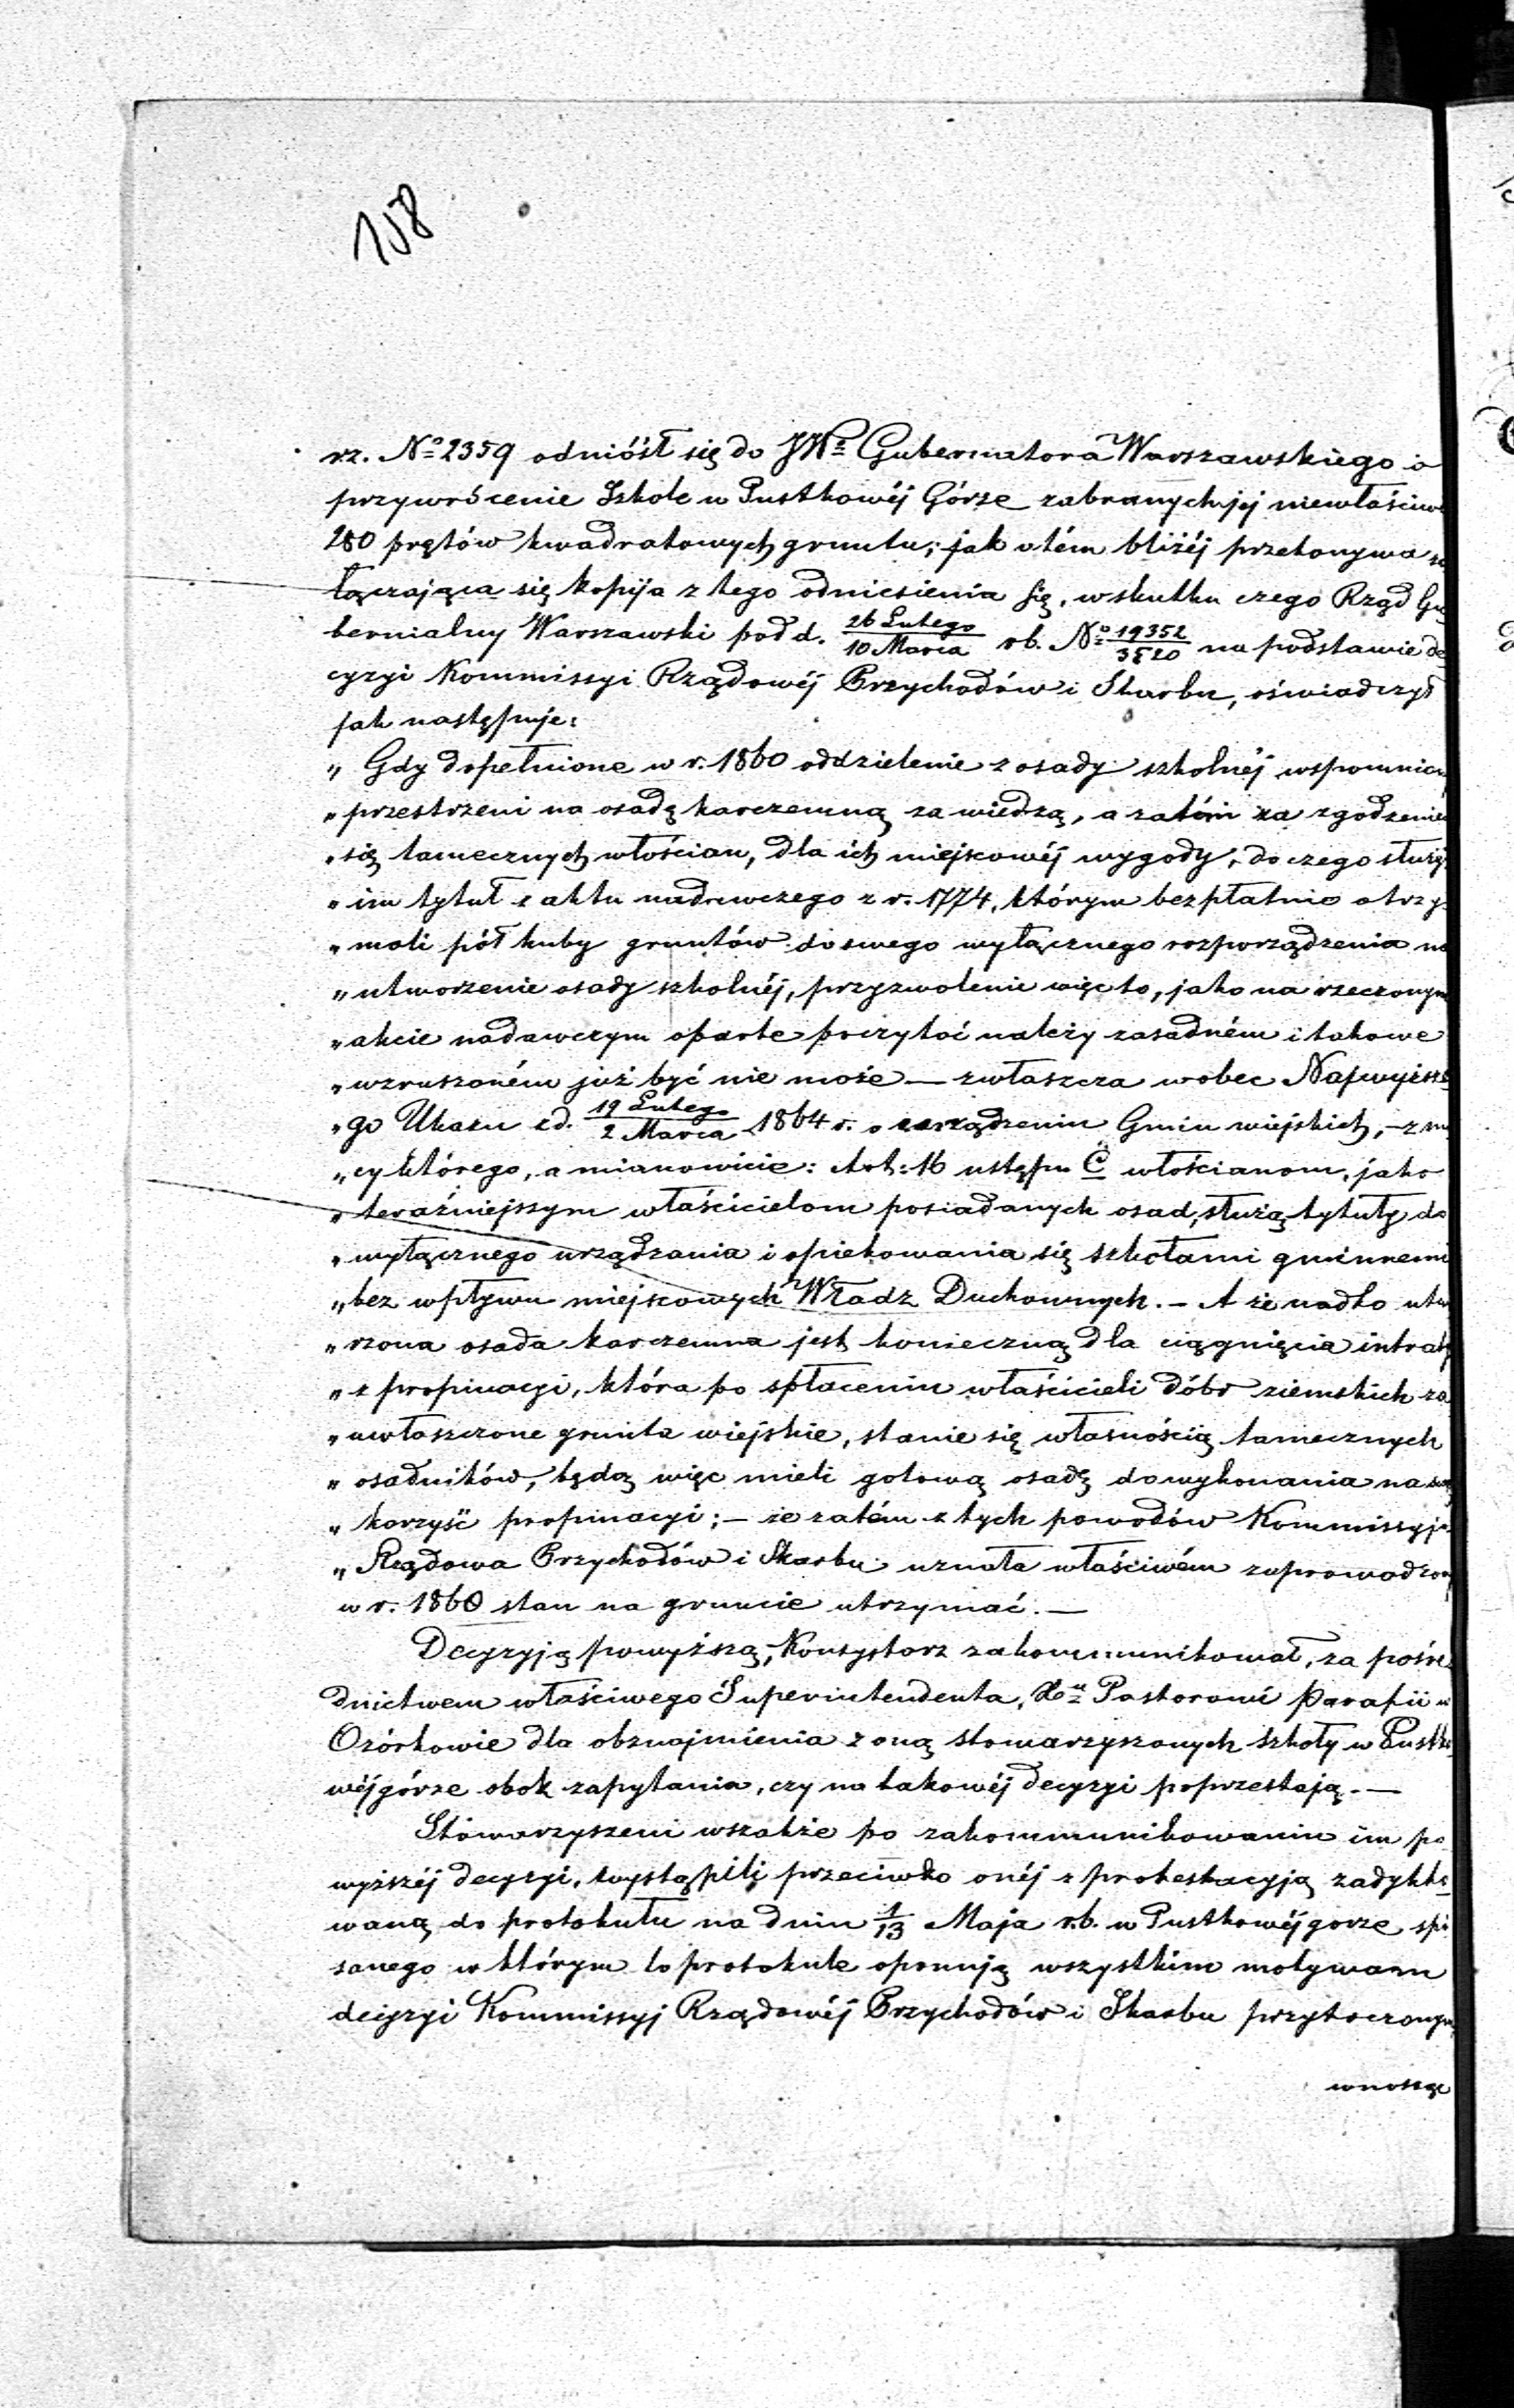 158
rz. No 2359 odniósł się do JWo Gubernatora Warszawskiego o
przywrócenie Szkole w Pustkowéj Górze zabranych jej niewłaściwie
280 prętów kwadratowych gruntu; jak o tém bliżéj przekonywa
łączająca się kopija z tego odniesienia się, w skutku czego Rząd Gu
bernialny Warszawski pod d. 26 Lutego/10 Marca rb. No 19352/3820 na podstawie de
cyzyi Kommissyi Rządowéj Przychodów i Skarbu, oświadczył
jak następuje:
„ Gdy dopełnione w r. 1860 oddzielenie z osady szkolnéj wspomnion
„ przestrzeni na osadę karczemną za wiedzą, a zatém za zgodzenie
„ się tamecznych włościan, dla ich miejscowéj wygody, do czego służy
„ im tytuł z aktu nadawczego z r. 1774, którym bezpłatnie otrzy
„ mali pół huby gruntów do swego wyłącznego rozporządzenia na
„ utworzenie osady szkolnéj, przyzwolenie więc to, jako na rzeczonym
„ akcie nadawczym oparte poczytać należy zasadném i takowe
„ wzruszoném już być nie może — zwłaszcza wobec Najwyższe
„ go Ukazu z d. 19 Lutego/2 Marca 1864 r. o urządzeniu Gmin wiejskich, – z mo
„ cy którego, a mianowicie: Art: 16 ustępu C włościanom, jako
„ teraźniejszym właścicielom posiadanych osad, służą tytuły do
„ wyłącznego urządzania i opiekowania się szkołami gminnemi
„ bez wpływu miejscowych Władz Duchownych. – A że nadto utwo
„ rzona osada karczemna jest konieczną dla ciągnięcia intraty
„ z propinacyi, która po spłaceniu właścicieli dóbr ziemskich za
„ uwłaszczone grunta wiejskie, stanie się własnością tamecznych
„ osadników, będą więc mieli gotową osadę do wykonania na
„ korzyść propinacyi; – że zatém z tych powodów Kommissyja
„ Rządowa Przychodów i Skarbu uznała właściwém zaprowadzony
w r. 1860 stan na gruncie utrzymać. —
Decyzyją powyższą, Konsystorz zakommunikował, za pośre
dnictwem właściwego Superintendenta, Pastorowi Parafii w
Ozórkowie dla obznajmienia z oną stowarzyszonych szkoły w Pustko
wéjgórze obok zapytania, czy na takowéj decyzyi poprzestają. —
Stowarzyszeni wszakże po zakommunikowaniu im po
wyższéj decyzyi, wystąpili przeciwko onéj z protestacyją zadykto
waną do protokułu na dniu 1/13 Maja r.b. w Pustkowéjgorze spi
sanego w którym to protokule oponują wszystkim motywom
decyzyi Kommissyj Rządowéj Przychodów i Skarbu przytoczonym
wnosząc